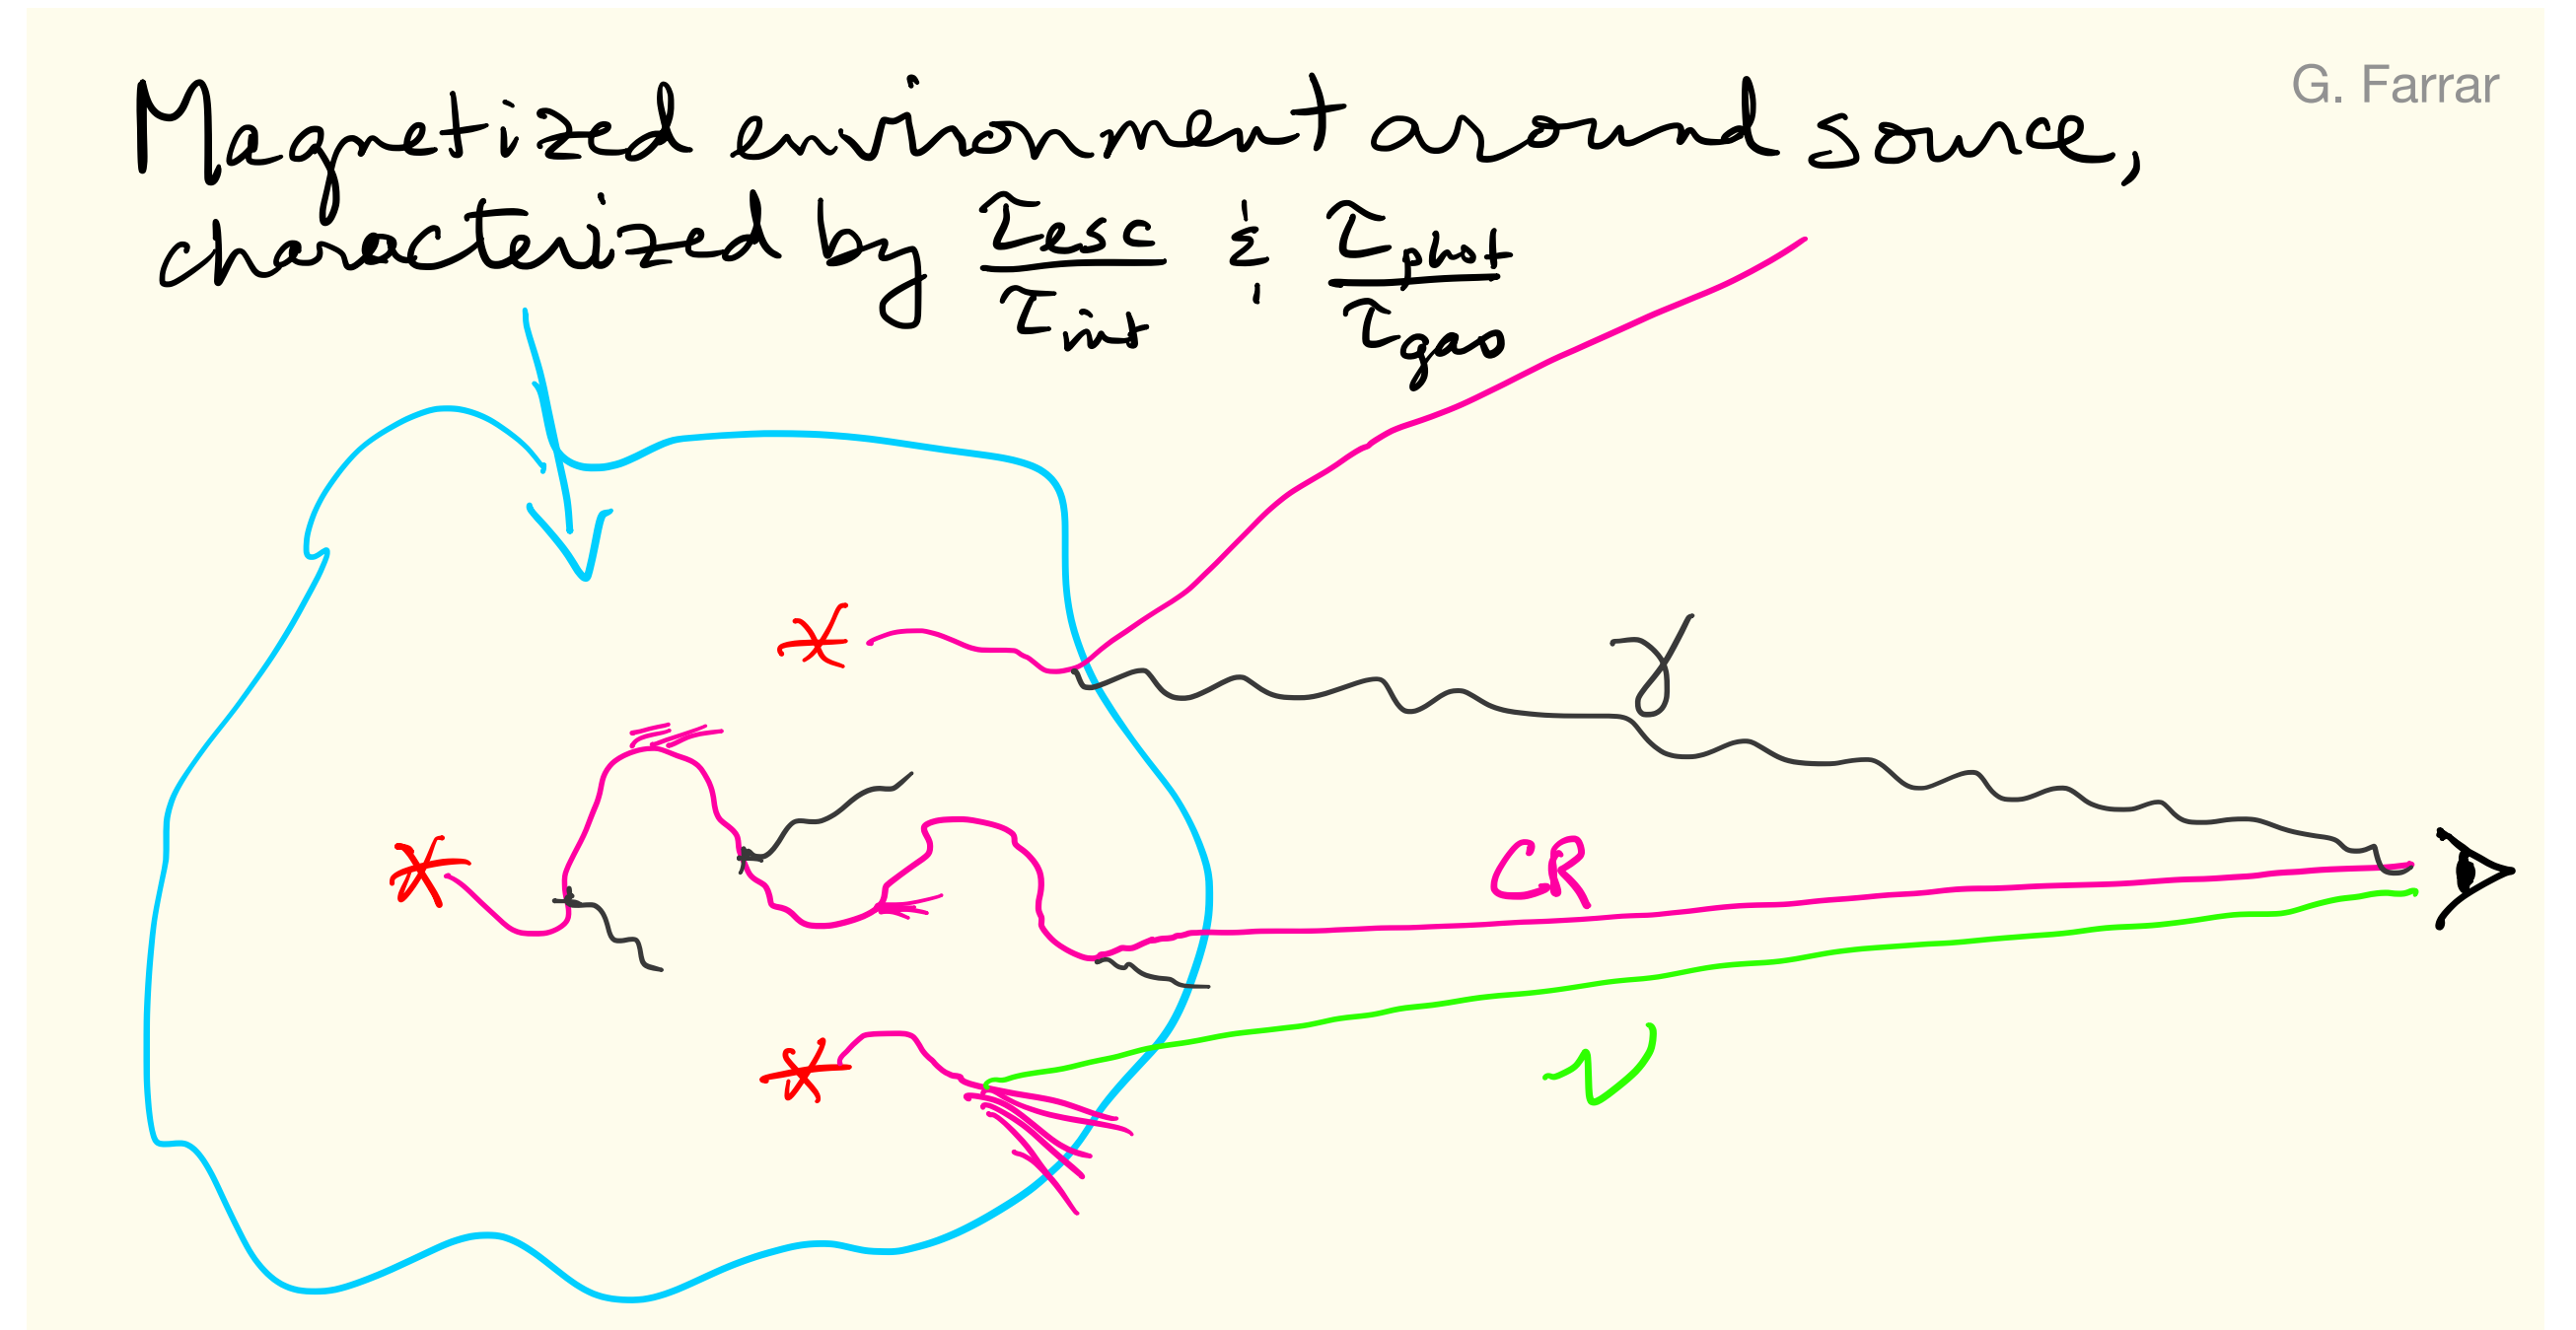 G. Farrar
Magnetized environment around source,
characterized by τesc/τint & τphot/τgas
γ
CR
ν